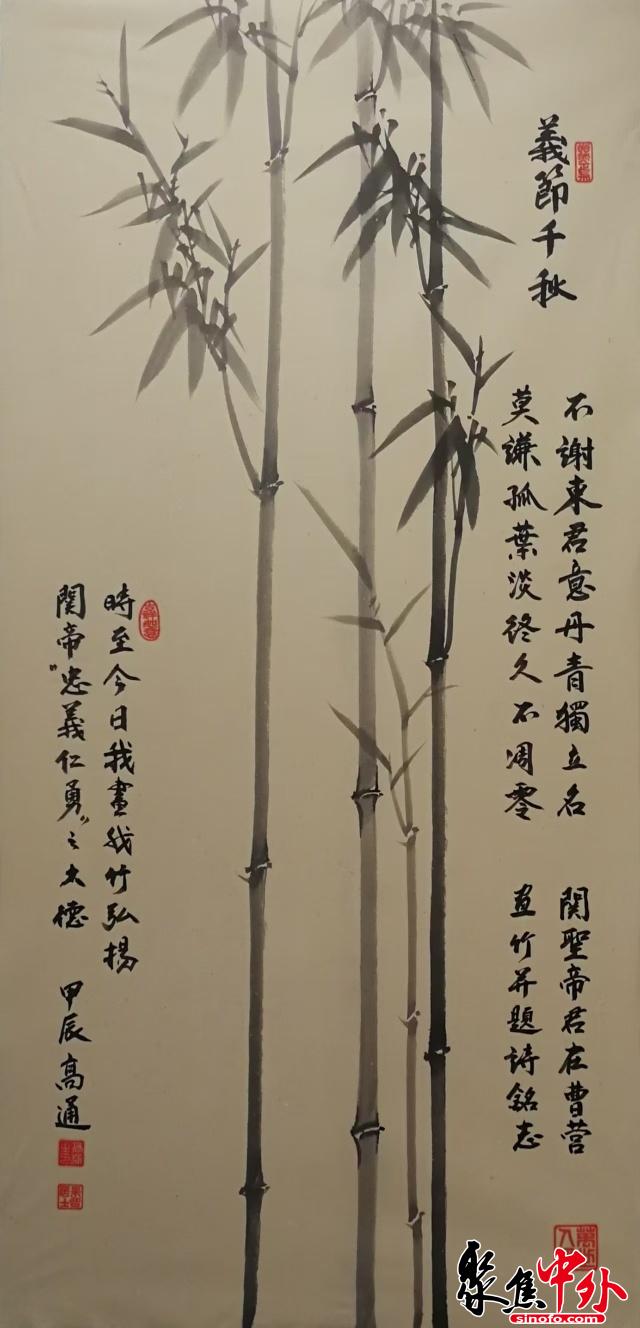 義節千秋
不謝東君意丹青獨立名
莫謙孤葉淡終久不凋零
関聖帝君在曹营
畫竹并題詩銘志
時至今日我畫我竹弘揚
関帝“忠義仁勇”之大德
甲辰高通
聚焦中外
sinofo.com